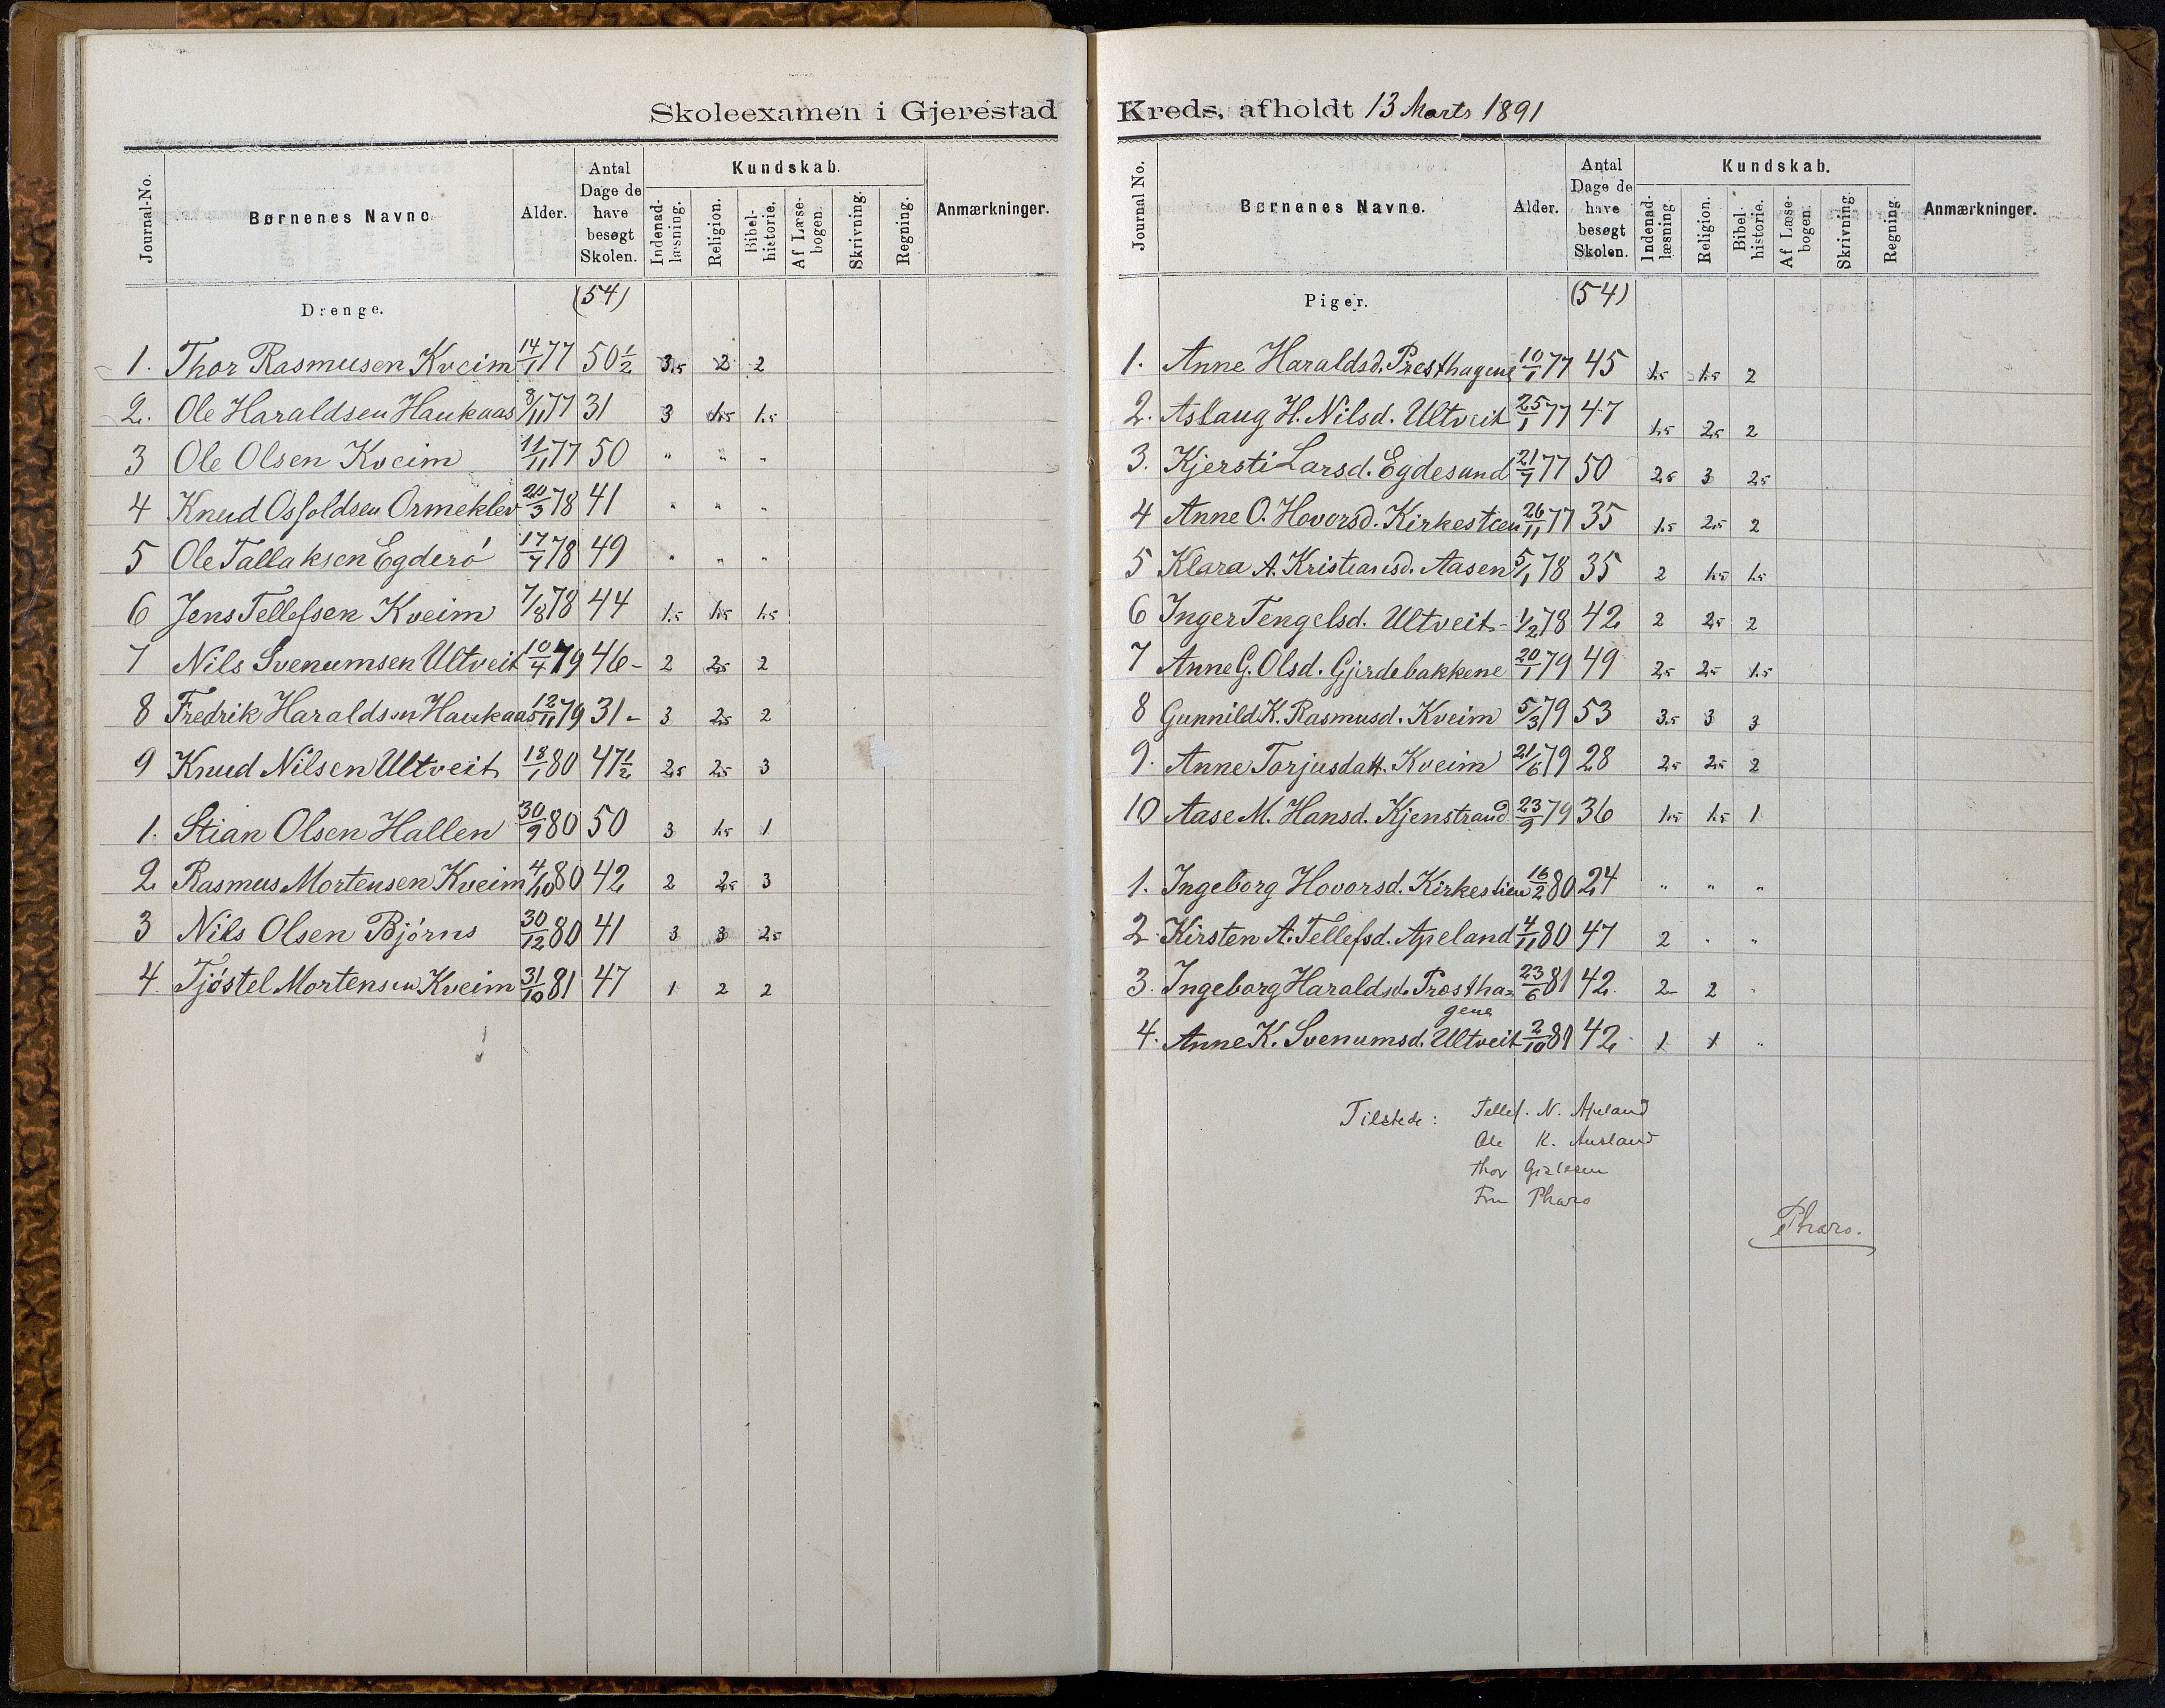 Skoleexamen i Gjerestad
Journal-No. Børnenes Navne Alder. Antal Dage de have besøgt Skolen. Kundskab. Anmærkninger.
Indenadlæsning. Religion. Bibelhistorie. Af Læsebogen. Skrivning. Regning.
Drenge. (54)
1. Thor Rasmusen Kveim 14/1 77 50½ 3.5 2 2
2. Ole Haraldsen Haukaas 8/11 77 31 3 1.5 1.5
3 Ole Olsen Kveim 11/11 77 50 " " "
4 Knud Osfoldsen Ormeklev 20/3 78 41 " " "
5 Ole Tallaksen Egderö 17/7 78 49 " " "
6 Jens Tellefsen Kveim 7/8 78 44 1.5 1.5 1.5
7 Nils Svenumsen Ultveit 10/4 79 46- 2 2.5 2
8 Fredrik Haraldsen Haukaas 12/11 79 31- 3 2.5 2
9 Knud Nilsen Ultveit 18/1 80 47½ 2.5 2.5 3
1. Stian Olsen Hallen 30/9 80 50 3 1.5 1
2 Rasmus Mortensen Kveim 4/10 80 42 2 2.5 3
3 Nils Olsen Björns 30/12 80 41 3 3 2.5
4. Tjöstel Mortensen Kveim 31/10 81 47 1 2 2
Kreds, afholdt 13 Marts 1891
Journal No. Børnenes Navne. Alder. Antal Dage de have besøgt Skolen. Kundskab. Anmærkninger.
Indenadlæsning. Religion. Bibelhistorie. Af Læsebogen. Skrivning. Regning.
Piger. (54)
1. Anne Haraldsd. Presthagene 10/1 77 45 1.5 1.5 2
2. Aslaug H. Nilsd. Ultveit 25/1 77 47 1.5 2.5 2
3. Kjersti Larsd. Egdesund 21/7 77 50 2.5 3 2.5
4 Anne O. Hovorsd. Kirkestien 26/11 77 35 1.5 2.5 2
5 Klara A. Kristiansd. Aasen 5/1 78 35 2 1.5 1.5
6 Inger Tengelsd. Ultveit- 1/2 78 42 2 2.5 2
7 Anne G. Olsd. Gjerdebakkene 20/1 79 49 2.5 2.5 1.5
8 Gunnild K. Rasmusd. Kveim 5/3 79 53 3.5 3 3
9. Anne Torjusdatt. Kveim 21/6 79 28 2.5 2.5 2
10 Aase M. Hansd. Kjenstrand 23/9 79 36 1.5 1.5 1
1. Ingeborg Hovorsd. Kirkestien 16/2 80 24 " " "
2. Kirsten A. Tellefsd. Apeland 4/11 80 47 2 " "
3. Ingeborg Haraldsd. Prestha=
gene 23/6 81 42 2 2 "
4. Anne K. Svenumsd. Ultveit 2/10 81 42 1 1 "
Tilstede: Tellef. N. Apeland
Ole K. Ausland
Thor
Fru Pharo
Pharo.